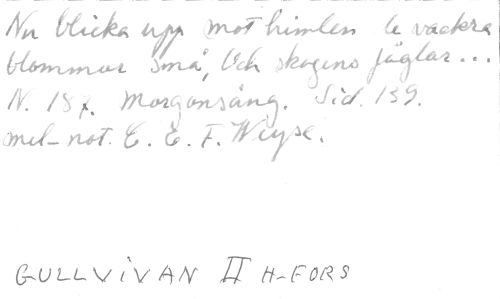 Nu blicka upp mot himlen de vackra
blommor små, Och skogens fåglar...
N. 187. Morgonsång. Sid. 139.
mel-not. C. E. F. Weyse.
GULLVIVAN II H-FORS